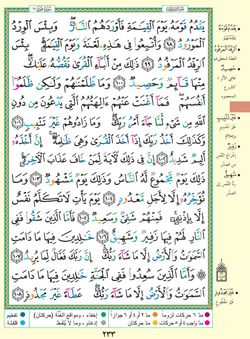 يَقْدُمُ قَوْمَهُۥ يَوْمَ ٱلْقِيَٰمَةِ فَأَوْرَدَهُمُ ٱلنَّارَ ۖ وَبِئْسَ ٱلْوِرْدُ
ٱلْمَوْرُودُ ٩٨ وَأُتْبِعُوا۟ فِى هَٰذِهِۦ لَعْنَةً وَيَوْمَ ٱلْقِيَٰمَةِ ۚ بِئْسَ
ٱلرِّفْدُ ٱلْمَرْفُودُ ٩٩ ذَٰلِكَ مِنْ أَنۢبَآءِ ٱلْقُرَىٰ نَقُصُّهُۥ عَلَيْكَ ۖ
مِنْهَا قَآئِمٌ وَحَصِيدٌ ١٠٠ وَمَا ظَلَمْنَٰهُمْ وَلَٰكِن ظَلَمُوٓا۟
أَنفُسَهُمْ ۖ فَمَآ أَغْنَتْ عَنْهُمْ ءَالِهَتُهُمُ ٱلَّتِى يَدْعُونَ مِن دُونِ
ٱللَّهِ مِن شَىْءٍ لَّمَّا جَآءَ أَمْرُ رَبِّكَ ۖ وَمَا زَادُوهُمْ غَيْرَ تَتْبِيبٍ ١٠١
وَكَذَٰلِكَ أَخْذُ رَبِّكَ إِذَآ أَخَذَ ٱلْقُرَىٰ وَهِىَ ظَٰلِمَةٌ ۚ إِنَّ أَخْذَهُۥٓ
أَلِيمٌ شَدِيدٌ ١٠٢ إِنَّ فِى ذَٰلِكَ لَءَايَةً لِّمَنْ خَافَ عَذَابَ ٱلْءَاخِرَةِ ۚ
ذَٰلِكَ يَوْمٌ مَّجْمُوعٌ لَّهُ ٱلنَّاسُ وَذَٰلِكَ يَوْمٌ مَّشْهُودٌ ١٠٣ وَمَا
نُؤَخِّرُهُۥٓ إِلَّا لِأَجَلٍ مَّعْدُودٍ ١٠٤ يَوْمَ يَأْتِ لَا تَكَلَّمُ نَفْسٌ
إِلَّا بِإِذْنِهِۦ ۚ فَمِنْهُمْ شَقِىٌّ وَسَعِيدٌ ١٠٥ فَأَمَّا ٱلَّذِينَ شَقُوا۟ فَفِى
ٱلنَّارِ لَهُمْ فِيهَا زَفِيرٌ وَشَهِيقٌ ١٠٦ خَٰلِدِينَ فِيهَا مَا دَامَتِ
ٱلسَّمَٰوَٰتُ وَٱلْأَرْضُ إِلَّا مَا شَآءَ رَبُّكَ ۚ إِنَّ رَبَّكَ فَعَّالٌ لِّمَا يُرِيدُ ١٠٧
وَأَمَّا ٱلَّذِينَ سُعِدُوا۟ فَفِى ٱلْجَنَّةِ خَٰلِدِينَ فِيهَا مَا دَامَتِ
ٱلسَّمَٰوَٰتُ وَٱلْأَرْضُ إِلَّا مَا شَآءَ رَبُّكَ ۖ عَطَآءً غَيْرَ مَجْذُوذٍ ١٠٨
٢٣٣